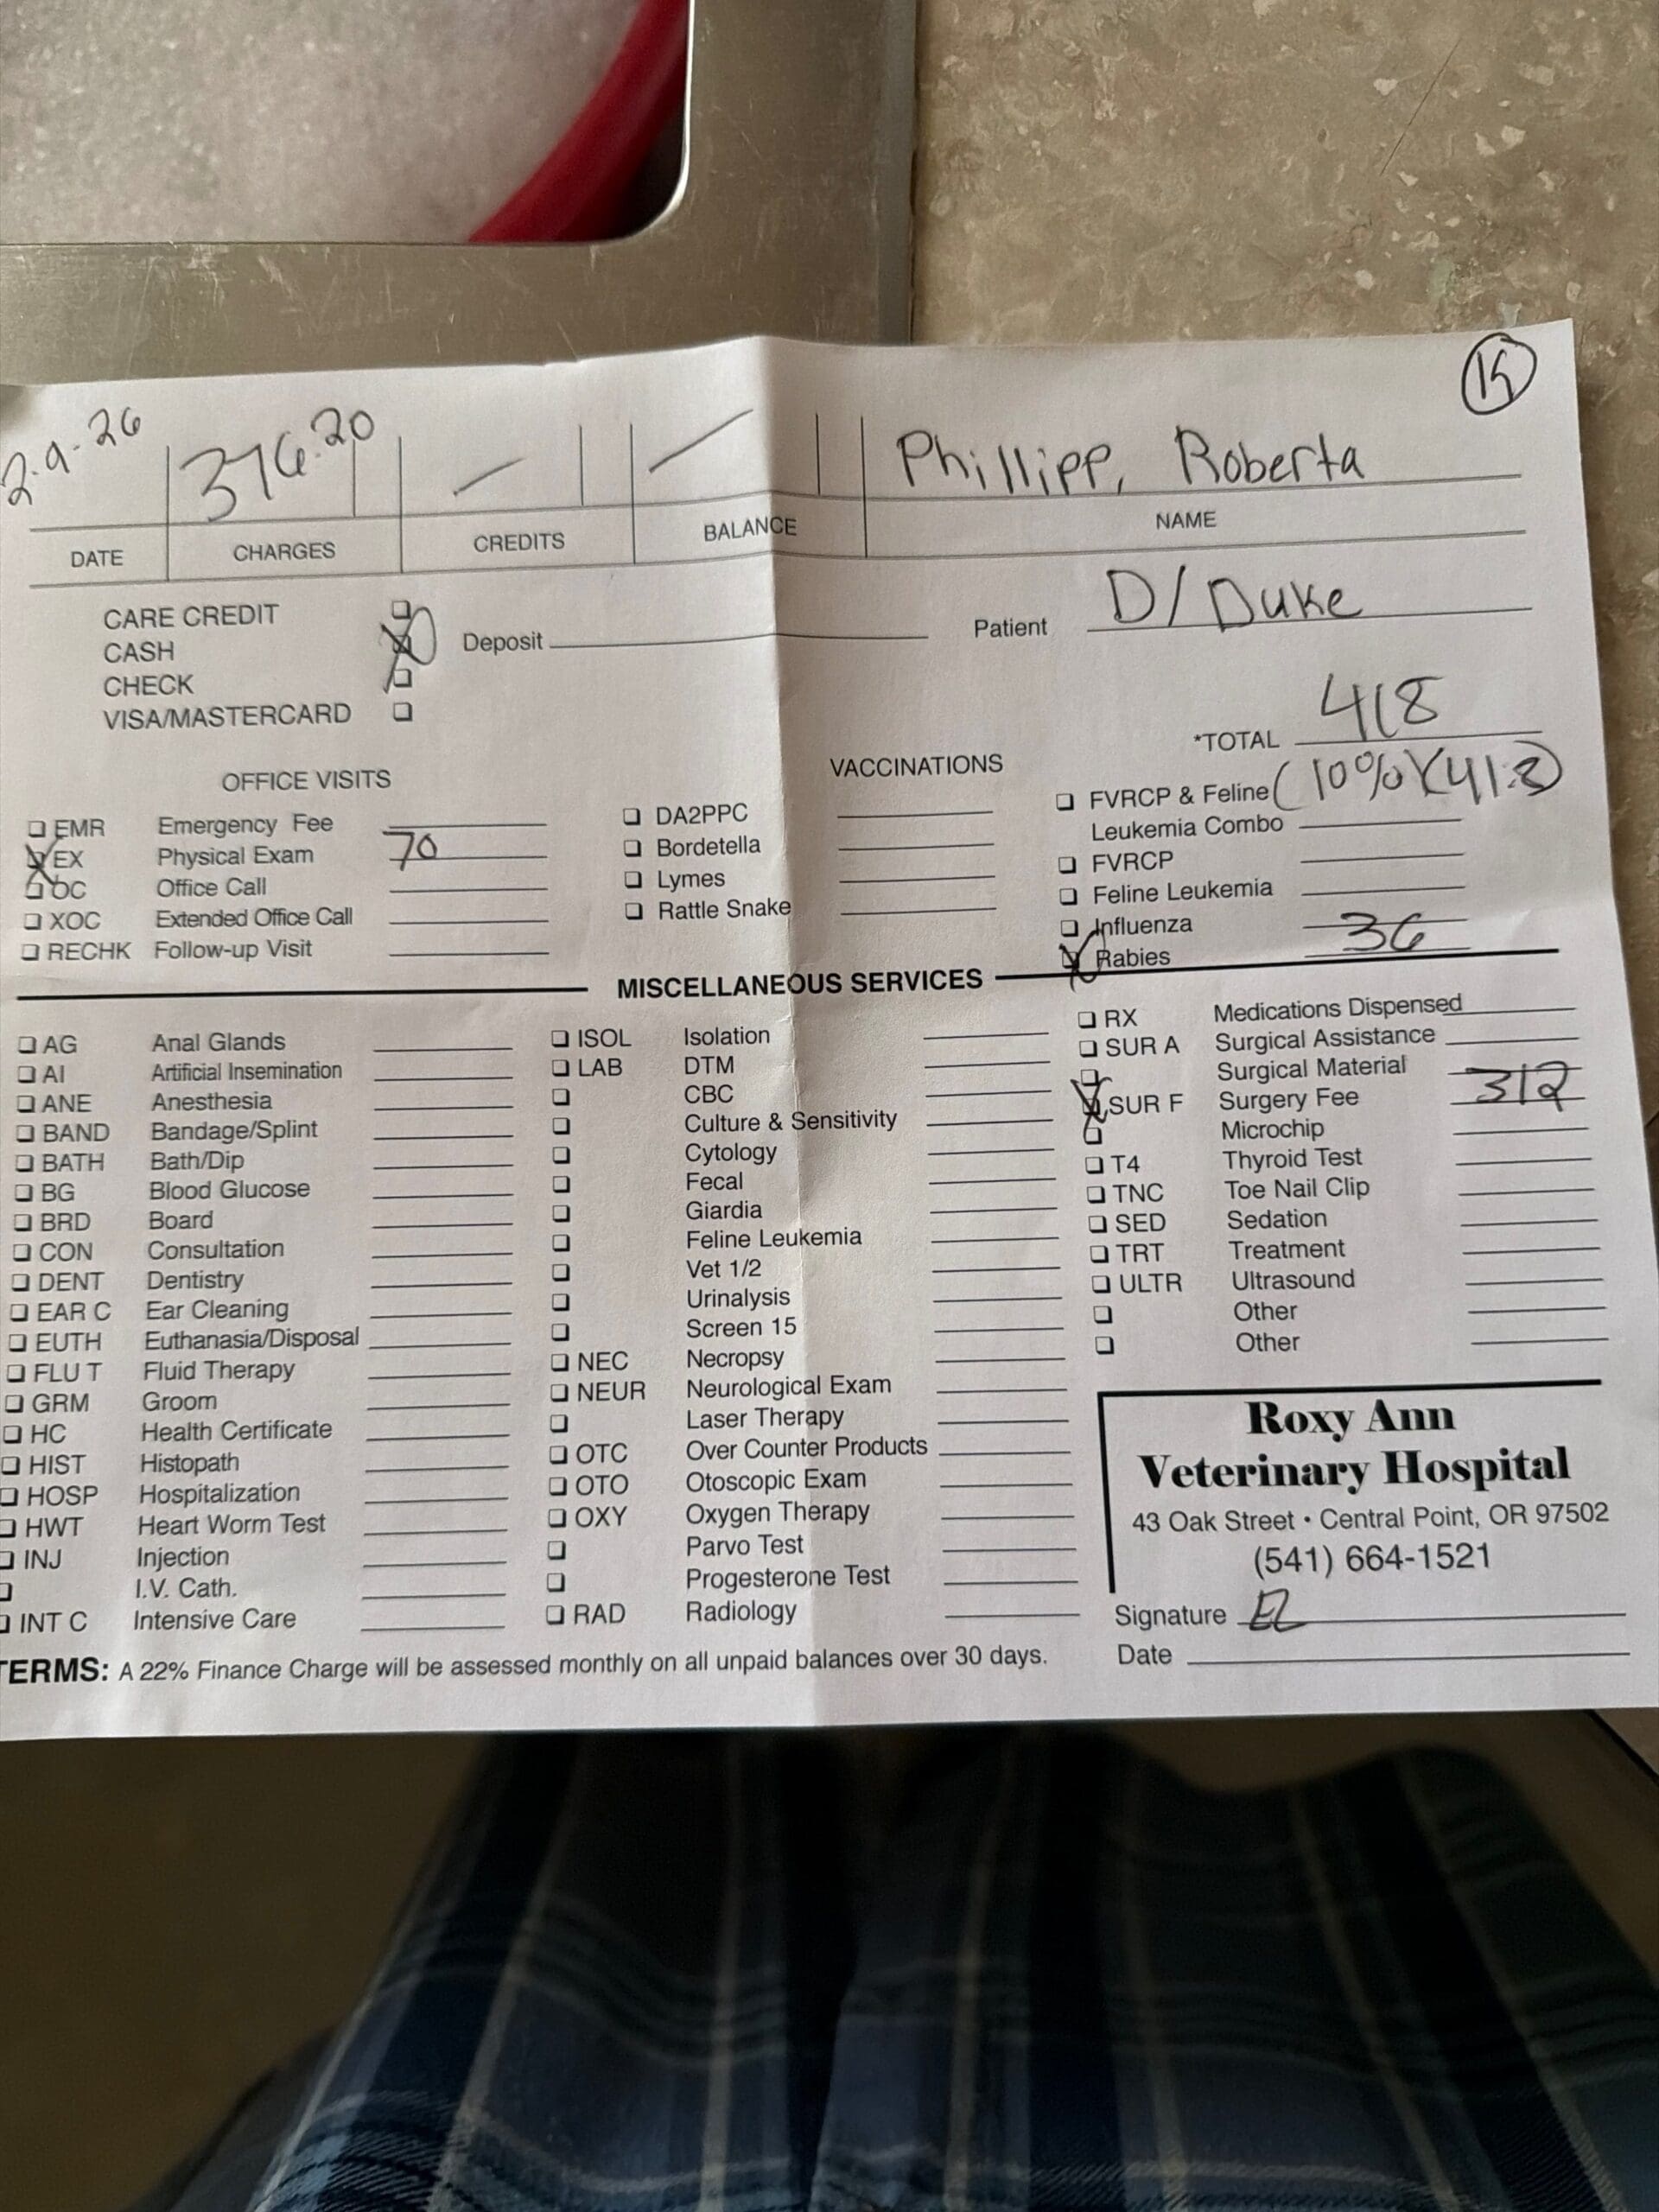 15
2-9-26 376.20 Phillipp, Roberta
DATE CHARGES CREDITS BALANCE NAME
CARE CREDIT
CASH
CHECK
VISA/MASTERCARD
Deposit
Patient D/Duke
*TOTAL 418
(10%)(41.8)
OFFICE VISITS
EMR Emergency Fee
EX Physical Exam 70
OC Office Call
XOC Extended Office Call
RECHK Follow-up Visit
VACCINATIONS
DA2PPC
Bordetella
Lymes
Rattle Snake
FVRCP & Feline
Leukemia Combo
FVRCP
Feline Leukemia
Influenza
Rabies 36
MISCELLANEOUS SERVICES
AG Anal Glands
AI Artificial Insemination
ANE Anesthesia
BAND Bandage/Splint
BATH Bath/Dip
BG Blood Glucose
BRD Board
CON Consultation
DENT Dentistry
EAR C Ear Cleaning
EUTH Euthanasia/Disposal
FLU T Fluid Therapy
GRM Groom
HC Health Certificate
HIST Histopath
HOSP Hospitalization
HWT Heart Worm Test
INJ Injection
I.V. Cath.
INT C Intensive Care
ISOL Isolation
LAB DTM
CBC
Culture & Sensitivity
Cytology
Fecal
Giardia
Feline Leukemia
Vet 1/2
Urinalysis
Screen 15
NEC Necropsy
NEUR Neurological Exam
Laser Therapy
OTC Over Counter Products
OTO Otoscopic Exam
OXY Oxygen Therapy
Parvo Test
Progesterone Test
RAD Radiology
RX Medications Dispensed
SUR A Surgical Assistance
Surgical Material
SUR F Surgery Fee 312
Microchip
T4 Thyroid Test
TNC Toe Nail Clip
SED Sedation
TRT Treatment
ULTR Ultrasound
Other
Other
Roxy Ann
Veterinary Hospital
43 Oak Street • Central Point, OR 97502
(541) 664-1521
Signature EL
Date
TERMS: A 22% Finance Charge will be assessed monthly on all unpaid balances over 30 days.